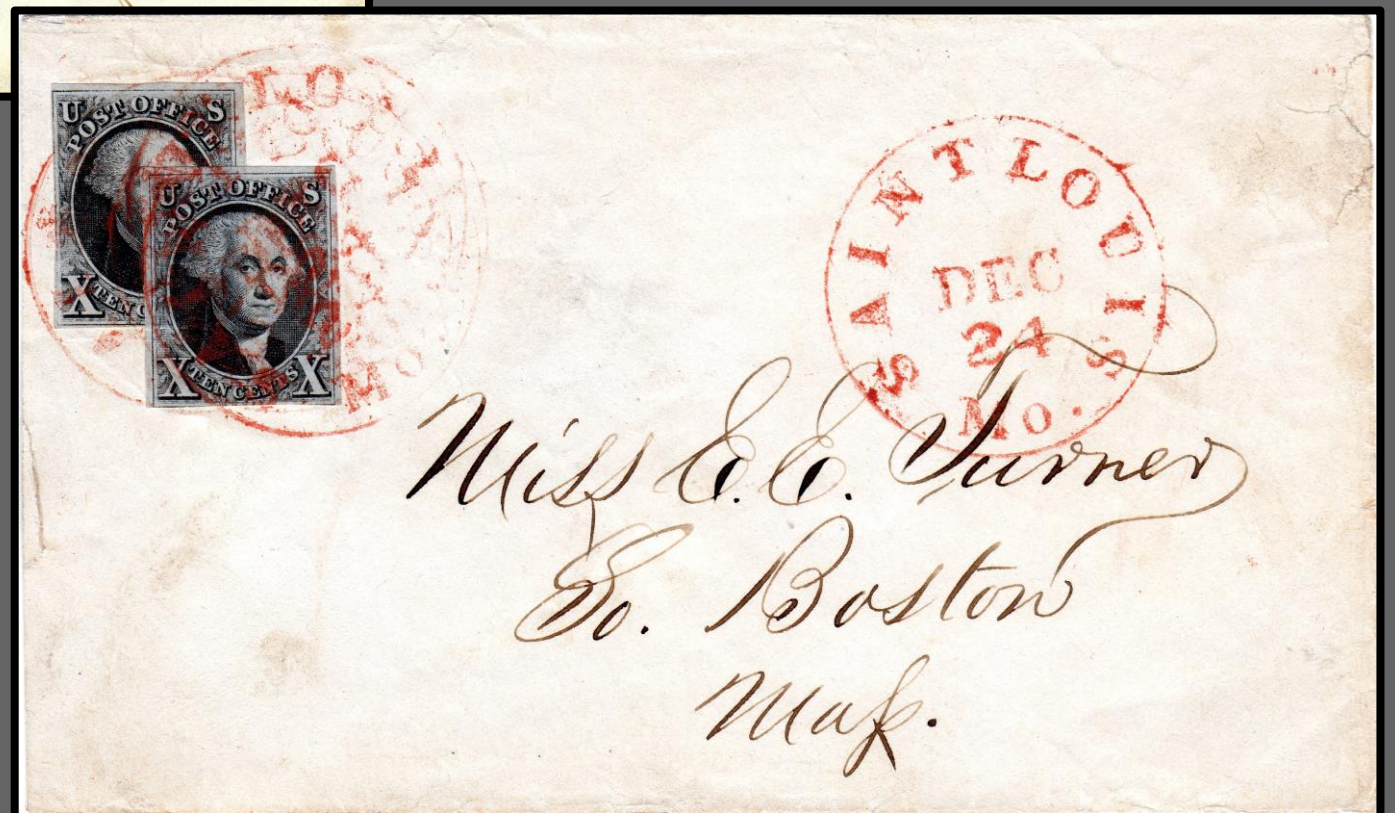 U S
POST OFFICE
X
U S
POST OFFICE
X TEN CENTS X
SAINT LOUIS
DEC
24
Mo.
Miss E. E. Turner
So. Boston
Mass.